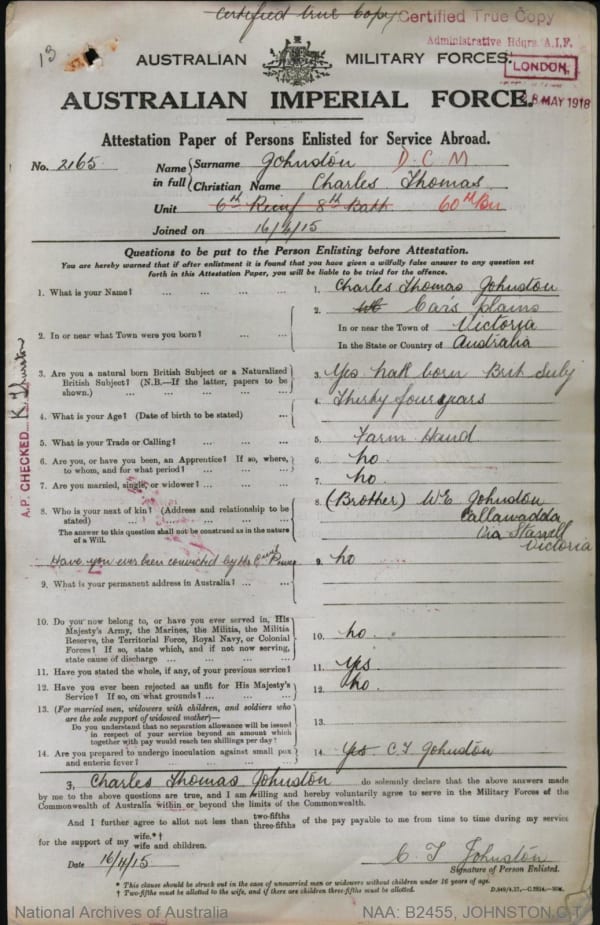 Certified true Copy
Certified True Copy
Administrative Hdqrs A.I.F.
LONDON,
MAY 1918
13
AUSTRALIAN MILITARY FORCES.
AUSTRALIAN IMPERIAL FORCE.
Attestation Paper of Persons Enlisted for Service Abroad.
No. 2165 Name in full Surname Johnston D.C.M
Christian Name Charles Thomas
Unit 6th Reinf 8th Battn 60th Bn
Joined on 16/4/15
Questions to be put to the Person Enlisting before Attestation.
You are hereby warned that if after enlistment it is found that you have given a wilfully false answer to any question set
forth in this Attestation Paper, you will be liable to be tried for the offence.
1. What is your Name? ... ... ... 1. Charles Thomas Johnston
2. In or near what Town were you born? ... 2. Car's plains
In or near the Town of Victoria
In the State or Country of Australia
3. Are you a natural born British Subject or a Naturalized
British Subject? (N.B.—If the latter, papers to be
shown.) ... ... ... 3. Yes natl born Brit Subj
4. What is your Age? (Date of birth to be stated) ... 4. Thirty four years
5. What is your Trade or Calling? ... ... ... 5. Farm Hand
6. Are you, or have you been, an Apprentice? If so, where,
to whom, and for what period? ... ... ... 6. no.
7. Are you married, single, or widower? ... ... 7. no.
8. Who is your next of kin? (Address and relationship to be
stated) ... ... ... ... 8. (Brother) W E Johnston
Callawadda
Via Stawell
Victoria
The answer to this question shall not be construed as in the nature
of a Will.
Have you ever been convicted by the Civil Power 9. no
9. What is your permanent address in Australia? ... ...
10. Do you now belong to, or have you ever served in, His
Majesty's Army, the Marines, the Militia, the Militia
Reserve, the Territorial Force, Royal Navy, or Colonial
Forces? If so, state which, and if not now serving,
state cause of discharge ... ... ... 10. no.
11. Have you stated the whole, if any, of your previous service? 11. Yes.
12. Have you ever been rejected as unfit for His Majesty's
Service? If so, on what grounds? ... ... 12. no.
13. (For married men, widowers with children, and soldiers who
are the sole support of widowed mother)—
Do you understand that no separation allowance will be issued
in respect of your service beyond an amount which
together with pay would reach ten shillings per day? 13.
14. Are you prepared to undergo inoculation against small pox
and enteric fever? ... ... ... 14. Yes C.T. Johnston
A.P. CHECKED
I, Charles Thomas Johnston do solemnly declare that the above answers made
by me to the above questions are true, and I am willing and hereby voluntarily agree to serve in the Military Forces of the
Commonwealth of Australia within or beyond the limits of the Commonwealth.
And I further agree to allot not less than two-fifths three-fifths of the pay payable to me from time to time during my service
for the support of my wife.*† wife and children.
Date 16/4/15 C T Johnston
Signature of Person Enlisted.
* This clause should be struck out in the case of unmarried men or widowers without children under 16 years of age.
† Two-fifths must be allotted to the wife, and if there are children three-fifths must be allotted.
National Archives of Australia NAA: B2455, JOHNSTON C T